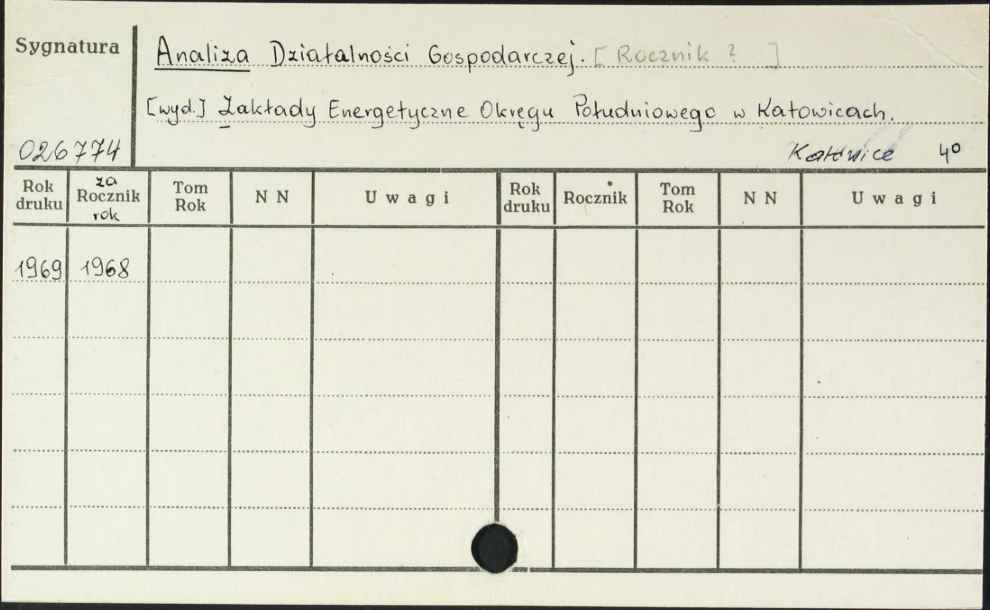 Sygnatura
Analiza Działalności Gospodarczej. [Rocznik ? ]
[wyd.] Zakłady Energetyczne Okręgu Południowego w Katowicach.
026774
Katowice 4°
Rok druku za Rocznik rok Tom Rok N N Uwagi Rok druku Rocznik Tom Rok N N Uwagi
1969 1968